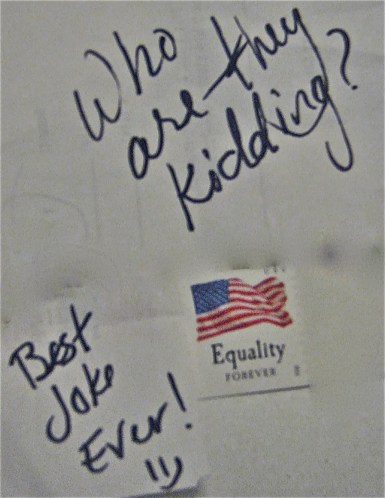 Who
are they
Kidding?
Equality
FOREVER
Best
Joke
Ever!